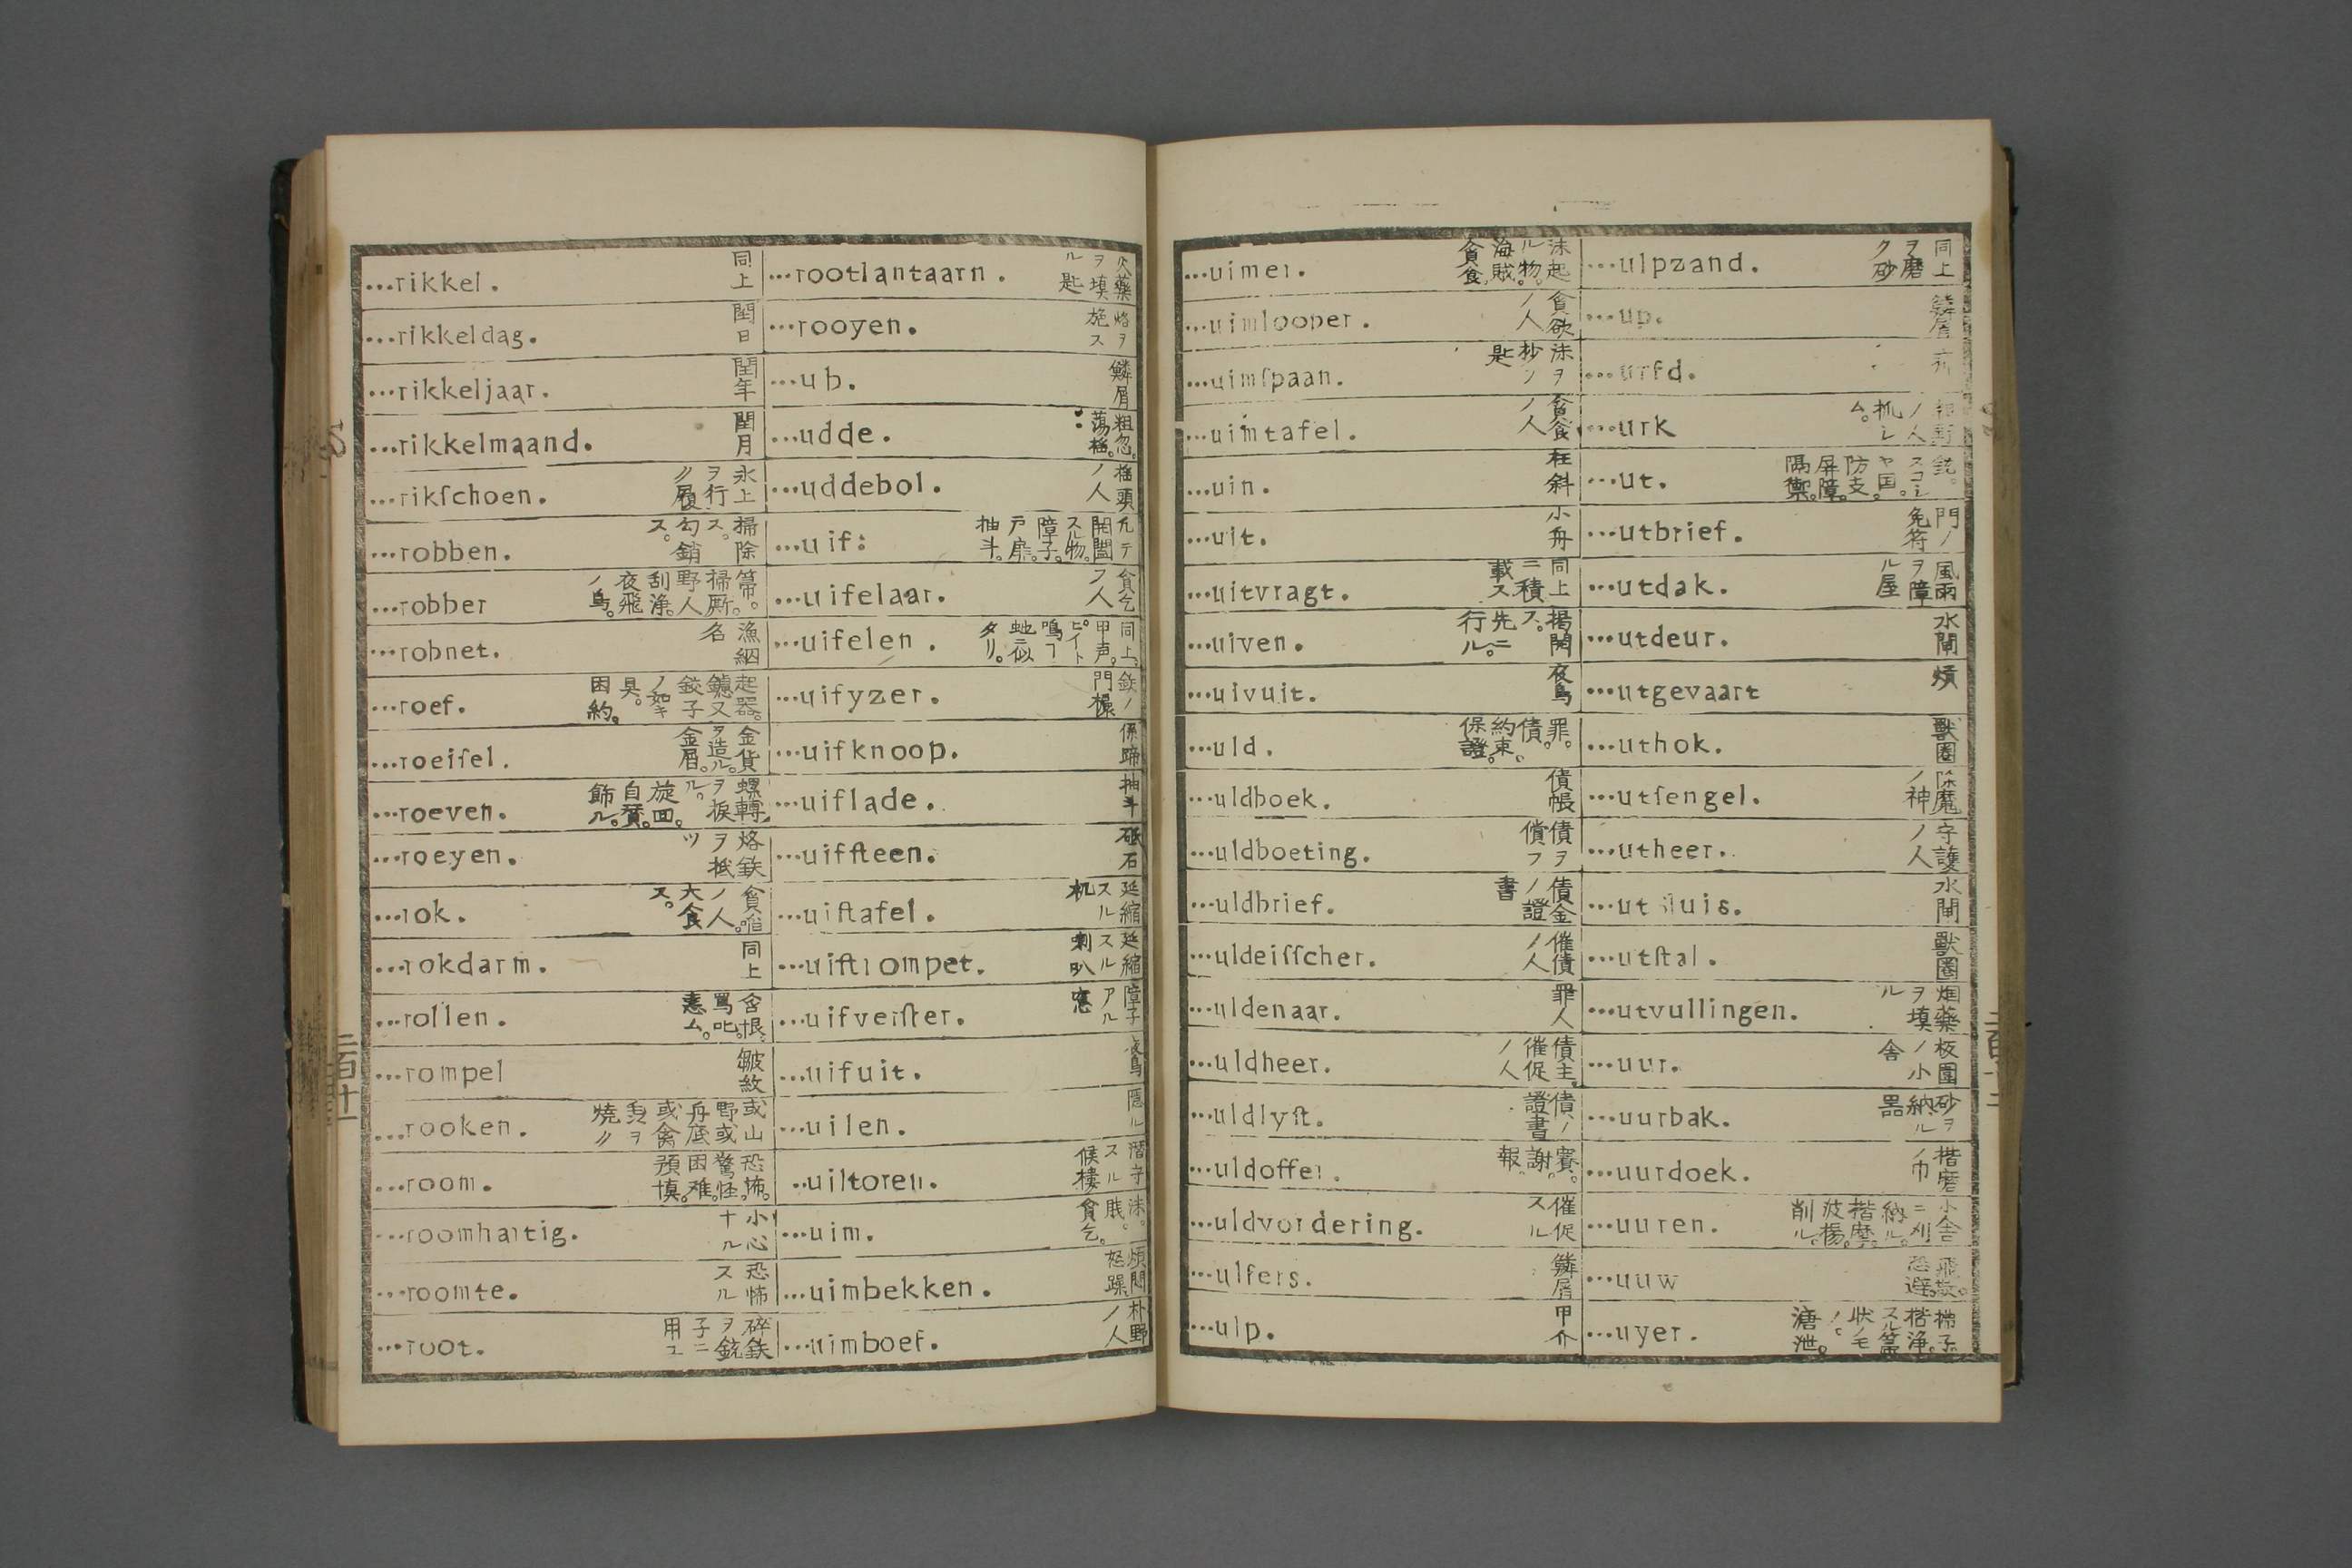 ...rikkel. 同上
...rikkeldag. 閏日
...rikkeljaar. 閏年
...rikkelmaand. 閏月
...rikſchoen. 氷上ヲ行ク履
...robben. 掃除ス。勾銷ス。
...robber 箒。掃厮。野人刮浄。夜飛ノ鳥。
...robnet. 漁網名
...roef.
...roeiſel. 金貨ヲ造ル。金屑。
...roeven.
...roeyen. 烙鉄ヲ抵ツ
...rok.
...rokdarm. 同上
...rollen. 含恨。罵叱。恚ム。
...rompel 皺紋
...rooken.
...room. 恐怖。驚怪。困难。
...roomhartig. 小心ナル
...roomte. 恐怖スル
...root. 碎鉄ヲ銃子ニ用ユ
...rootlantaarn. 火藥ヲ填ル匙
...rooyen. 烙ヲ施ス
...ub. 鱗屑
...udde. 粗忽。蕩搖。
...uddebol. 搖頭ノ人
...uif: 凡テ開闔スル物。障子。戸扉。抽斗。
...uifelaar. 貪乞フ人
...uifelen.
...uifyzer.
...uifknoop. 係蹄
...uiflade. 抽斗
...uifſteen. 砥石
...uiftafel. 延縮スル机
...uiftrompet. 延縮スル喇叭
...uifverſter. 障子アル窓
...uifuit. 夜鳥
...uilen. 隱ル
..uiltoren. 潛守スル候樓
...uim. 沫。賎。貪乞。
...uimbekken. 煩悶怒躁
...uimboef. 朴野ノ人
...uimer. 沫起ル物。海賊。貪食。
...uimlooper. 貪欲ノ人
...uimſpaan. 沫ヲ抄ノ匙
...uimtafel. 貪食ノ人
...uin. 枉斜
...uit. 小舟
...uitvragt. 同上ニ積載ス
...uiven. 揚開ス。先ニ行ル。
...uivuit. 夜鳥
...uld. 罪。債。約束。保證。
...uldboek. 債帳
...uldboeting. 債ヲ償フ
...uldbrief. 債金ノ證書
...uldeiſſcher. 催債ノ人
...uldenaar. 罪人
...uldheer. 債主。催促ノ人
...uldlyſt. 債ノ證書
...uldoffer. 賽。謝。報。
...uldvordering. 催促スル
...ulfers. 鱗屑
...ulp. 甲介
...ulpzand. 同上ヲ磨ク砂
...up. 鱗屑
...urfd.
...urk
...ut.
...utbrief. 門ノ免符
...utdak. 風雨ヲ障ル屋
...utdeur. 水閘
...utgevaart 煩
...uthok. 獸圈
...utſengel. 除魔ノ神
...utheer. 守護ノ人
...utſluis. 水閘
...utſtal. 獸圈
...utvullingen. 烟藥ヲ填ル
...uur. 板圍ノ小舎
...uurbak. 砂ヲ納ル器
...uurdoek. 揩磨ノ巾
...uuren.
...uuw
...uyer.